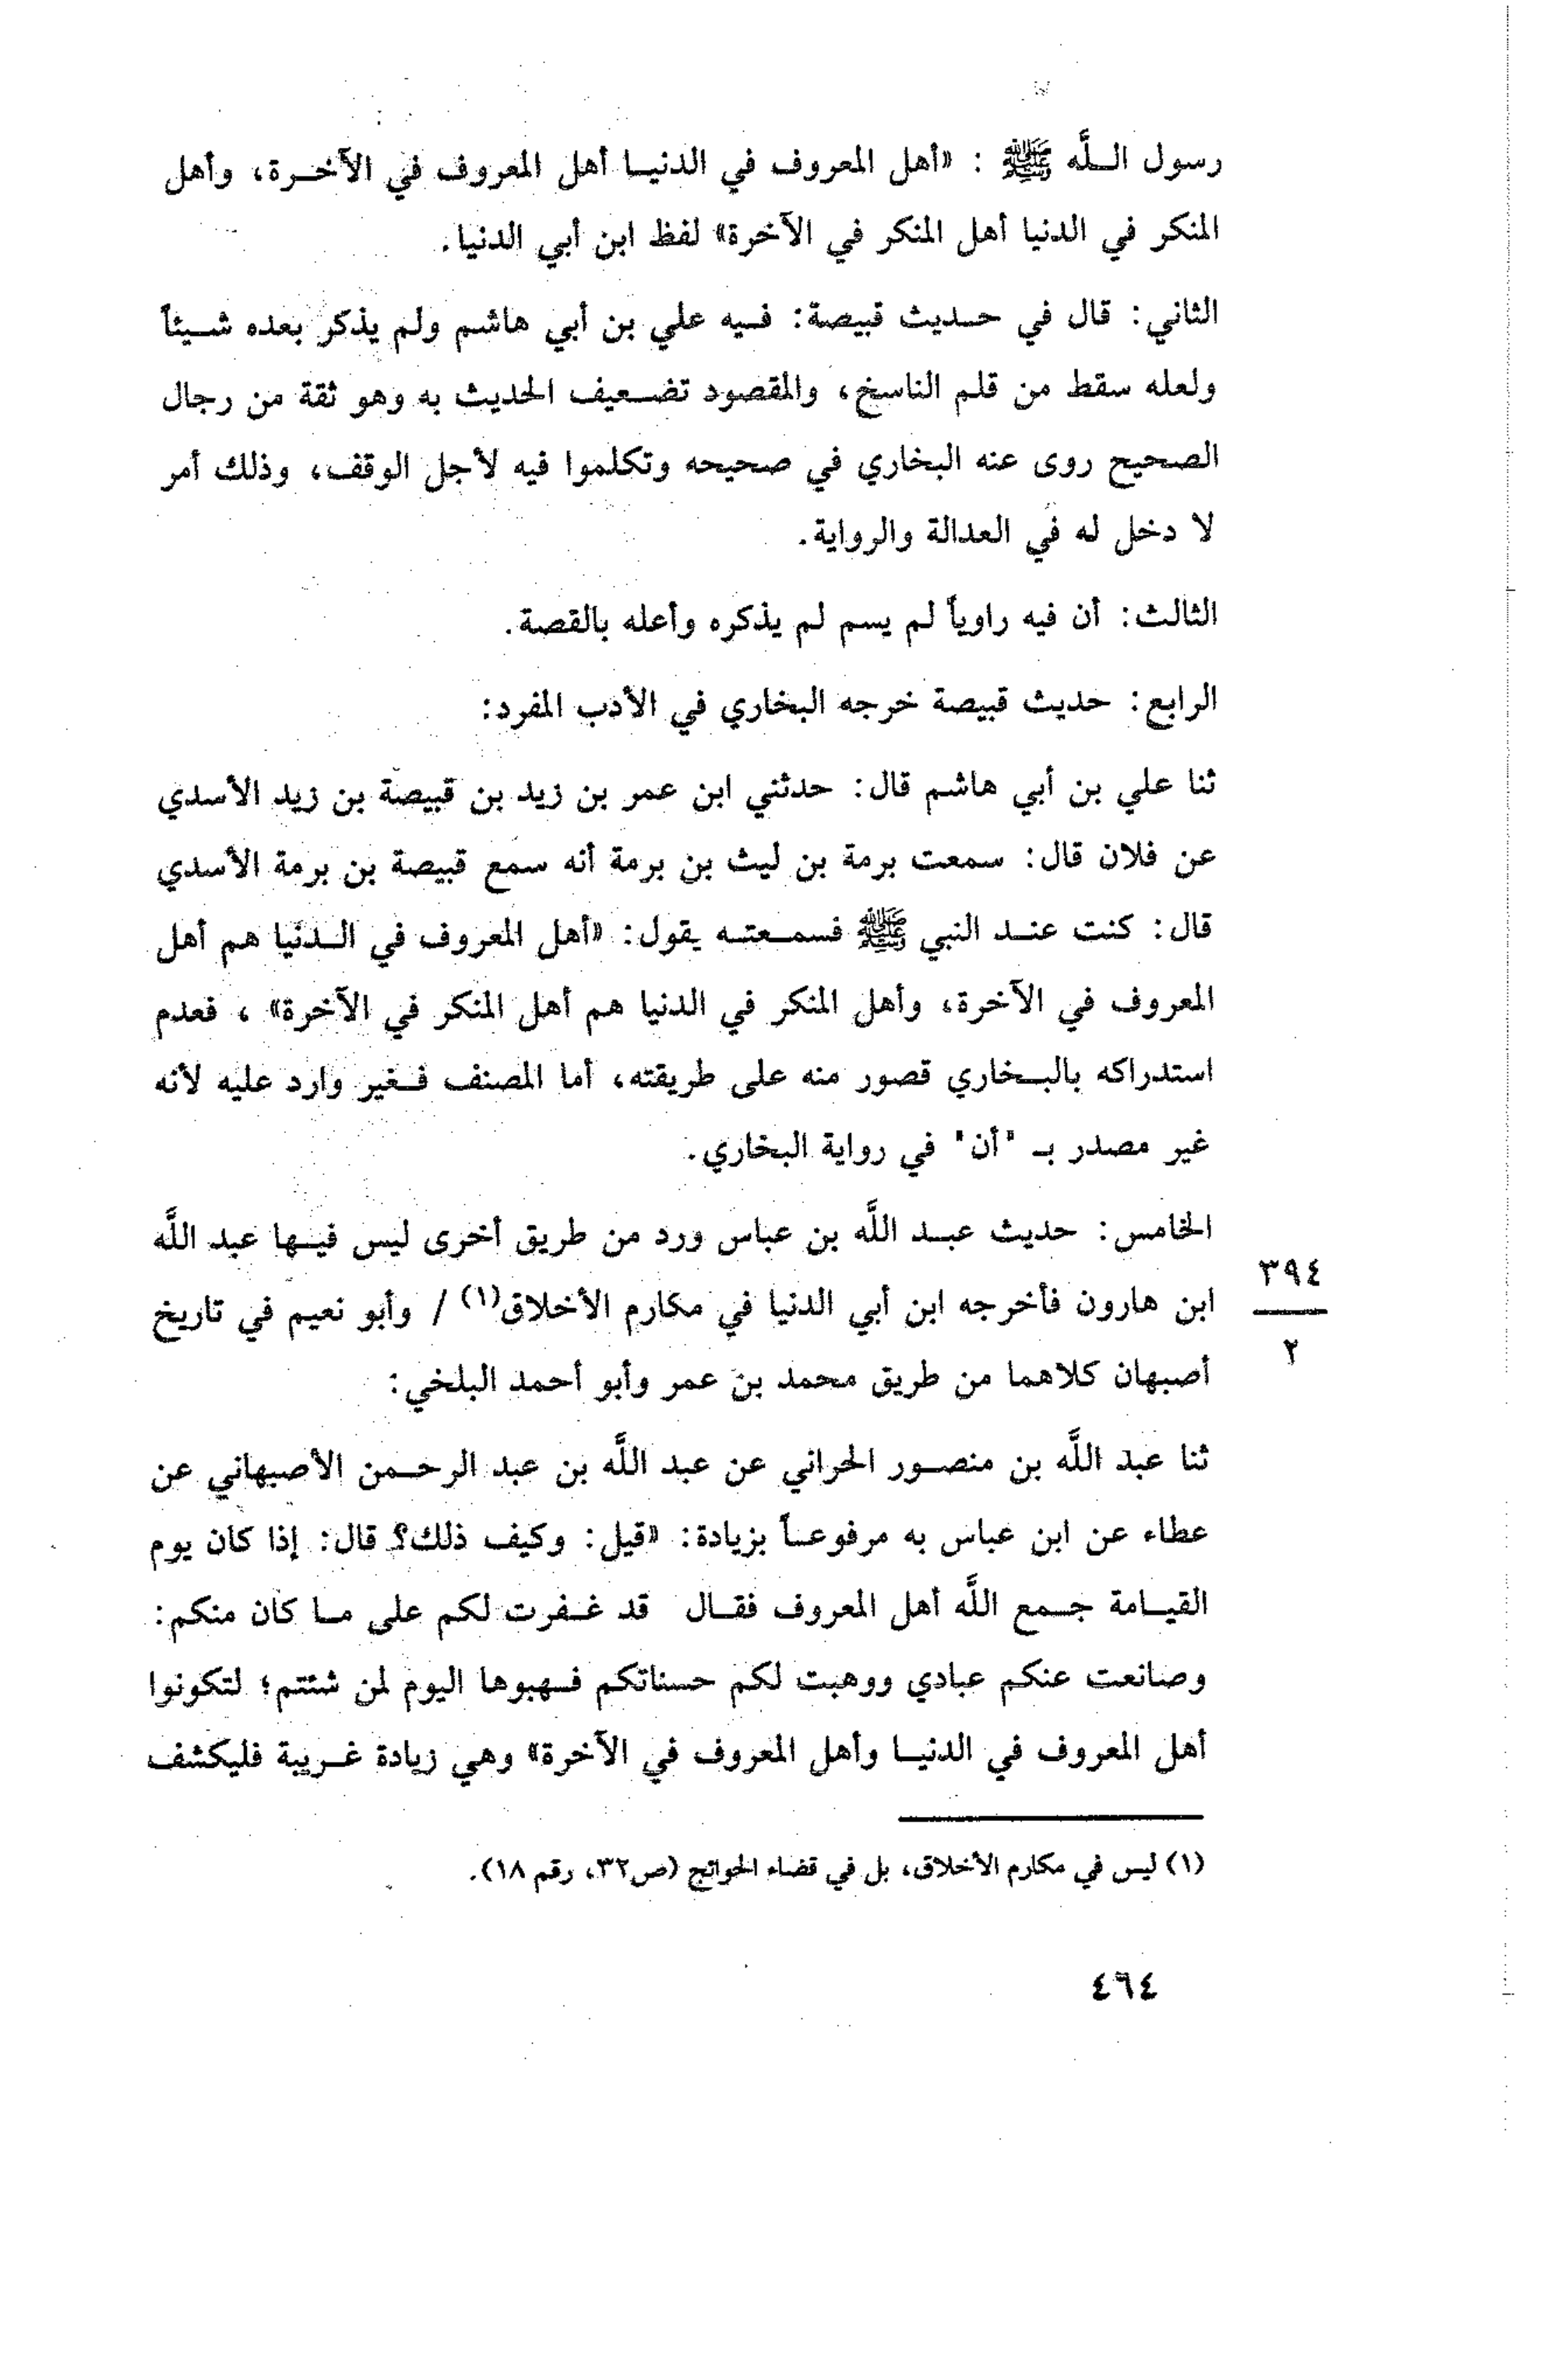 رسول اللَّه ﷺ : «أهل المعروف في الدنيا أهل المعروف في الآخرة، وأهل
المنكر في الدنيا أهل المنكر في الآخرة» لفظ ابن أبي الدنيا.
الثاني: قال في حديث قبيصة: فيه علي بن أبي هاشم ولم يذكر بعده شيئاً
ولعله سقط من قلم الناسخ، والمقصود تضعيف الحديث به وهو ثقة من رجال
الصحيح روى عنه البخاري في صحيحه وتكلموا فيه لأجل الوقف، وذلك أمر
لا دخل له في العدالة والرواية.
الثالث: أن فيه راوياً لم يسم لم يذكره وأعله بالقصة.
الرابع: حديث قبيصة خرجه البخاري في الأدب المفرد:
ثنا علي بن أبي هاشم قال: حدثني ابن عمر بن زيد بن قبيصة بن زيد الأسدي
عن فلان قال: سمعت برمة بن ليث بن برمة أنه سمع قبيصة بن برمة الأسدي
قال: كنت عند النبي ﷺ فسمعته يقول: «أهل المعروف في الدنيا هم أهل
المعروف في الآخرة، وأهل المنكر في الدنيا هم أهل المنكر في الآخرة» ، فعدم
استدراكه بالبخاري قصور منه على طريقته، أما المصنف فغير وارد عليه لأنه
غير مصدر بـ "أن" في رواية البخاري.
الخامس: حديث عبد اللَّه بن عباس ورد من طريق أخرى ليس فيها عبد اللَّه
٣٩٤
ابن هارون فأخرجه ابن أبي الدنيا في مكارم الأخلاق(١) / وأبو نعيم في تاريخ
٢
أصبهان كلاهما من طريق محمد بن عمر وأبو أحمد البلخي:
ثنا عبد اللَّه بن منصور الحراني عن عبد اللَّه بن عبد الرحمن الأصبهاني عن
عطاء عن ابن عباس به مرفوعاً بزيادة: «قيل: وكيف ذلك؟ قال: إذا كان يوم
القيامة جمع اللَّه أهل المعروف فقال قد غفرت لكم على ما كان منكم:
وصانعت عنكم عبادي ووهبت لكم حسناتكم فهبوها اليوم لمن شئتم؛ لتكونوا
أهل المعروف في الدنيا وأهل المعروف في الآخرة» وهي زيادة غريبة فليكشف
(١) ليس في مكارم الأخلاق، بل في قضاء الحوائج (ص٣٢، رقم ١٨).
٤٦٤